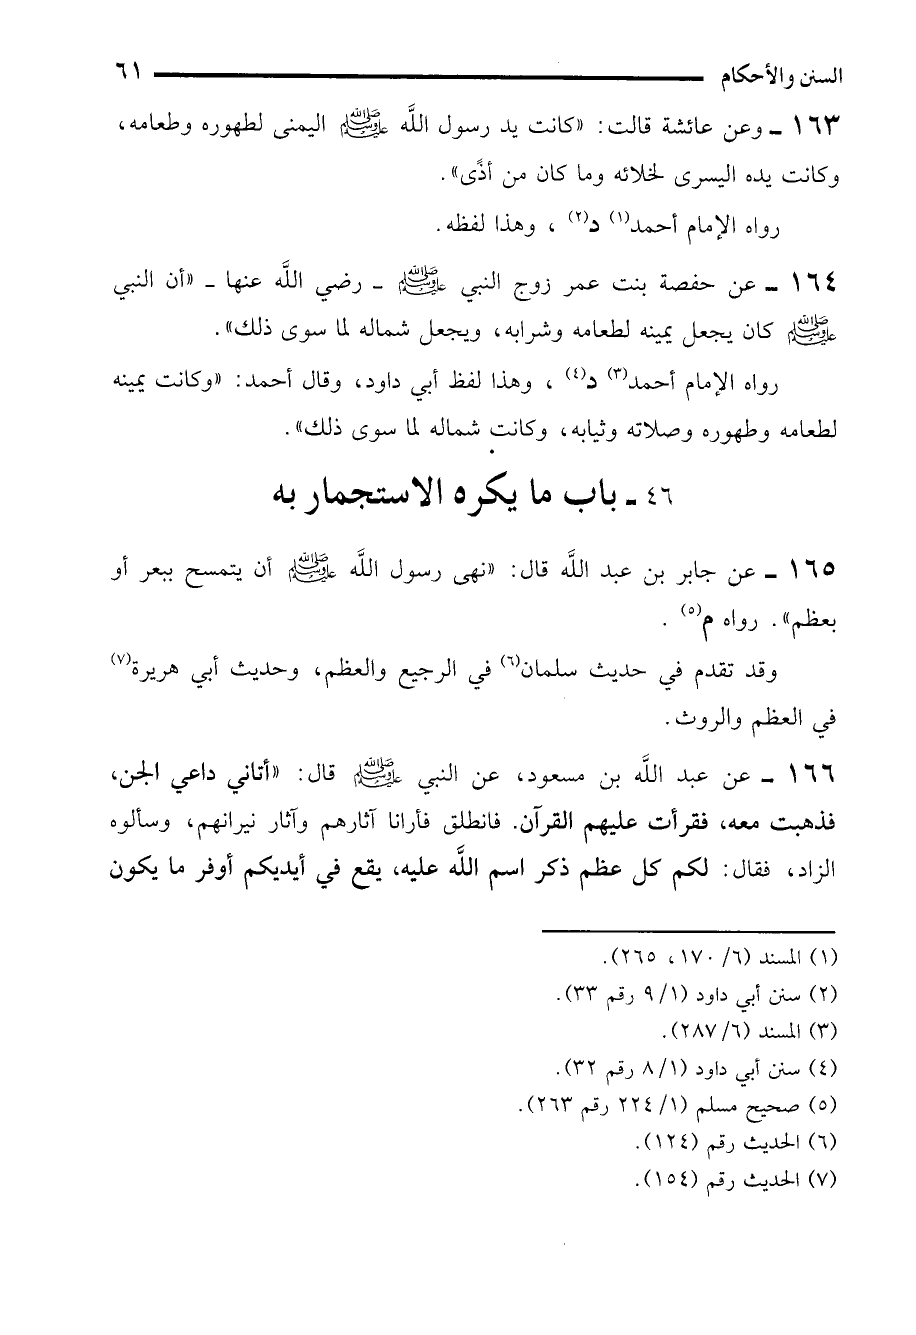 السنن والأحكام ٦١
١٦٣ ـ وعن عائشة قالت: «كانت يد رسول اللَّه ﷺ اليمنى لطهوره وطعامه،
وكانت يده اليسرى لخلائه وما كان من أذًى».
رواه الإمام أحمد(١) د(٢) ، وهذا لفظه.
١٦٤ ـ عن حفصة بنت عمر زوج النبي ﷺ ـ رضي اللَّه عنها ـ «أن النبي
ﷺ كان يجعل يمينه لطعامه وشرابه، ويجعل شماله لما سوى ذلك».
رواه الإمام أحمد(٣) د(٤) ، وهذا لفظ أبي داود، وقال أحمد: «وكانت يمينه
لطعامه وطهوره وصلاته وثيابه، وكانت شماله لما سوى ذلك».
٤٦ ـ باب ما يكره الاستجمار به
١٦٥ ـ عن جابر بن عبد اللَّه قال: «نهى رسول اللَّه ﷺ أن يتمسح ببعر أو
بعظم». رواه م(٥) .
وقد تقدم في حديث سلمان(٦) في الرجيع والعظم، وحديث أبي هريرة(٧)
في العظم والروث.
١٦٦ ـ عن عبد اللَّه بن مسعود، عن النبي ﷺ قال: «أتاني داعي الجن،
فذهبت معه، فقرأت عليهم القرآن. فانطلق فأرانا آثارهم وآثار نيرانهم، وسألوه
الزاد، فقال: لكم كل عظم ذكر اسم اللَّه عليه، يقع في أيديكم أوفر ما يكون
(١) المسند (٦/ ١٧٠، ٢٦٥).
(٢) سنن أبي داود (١/ ٩ رقم ٣٣).
(٣) المسند (٦/ ٢٨٧).
(٤) سنن أبي داود (١/ ٨ رقم ٣٢).
(٥) صحيح مسلم (١/ ٢٢٤ رقم ٢٦٣).
(٦) الحديث رقم (١٢٤).
(٧) الحديث رقم (١٥٤).